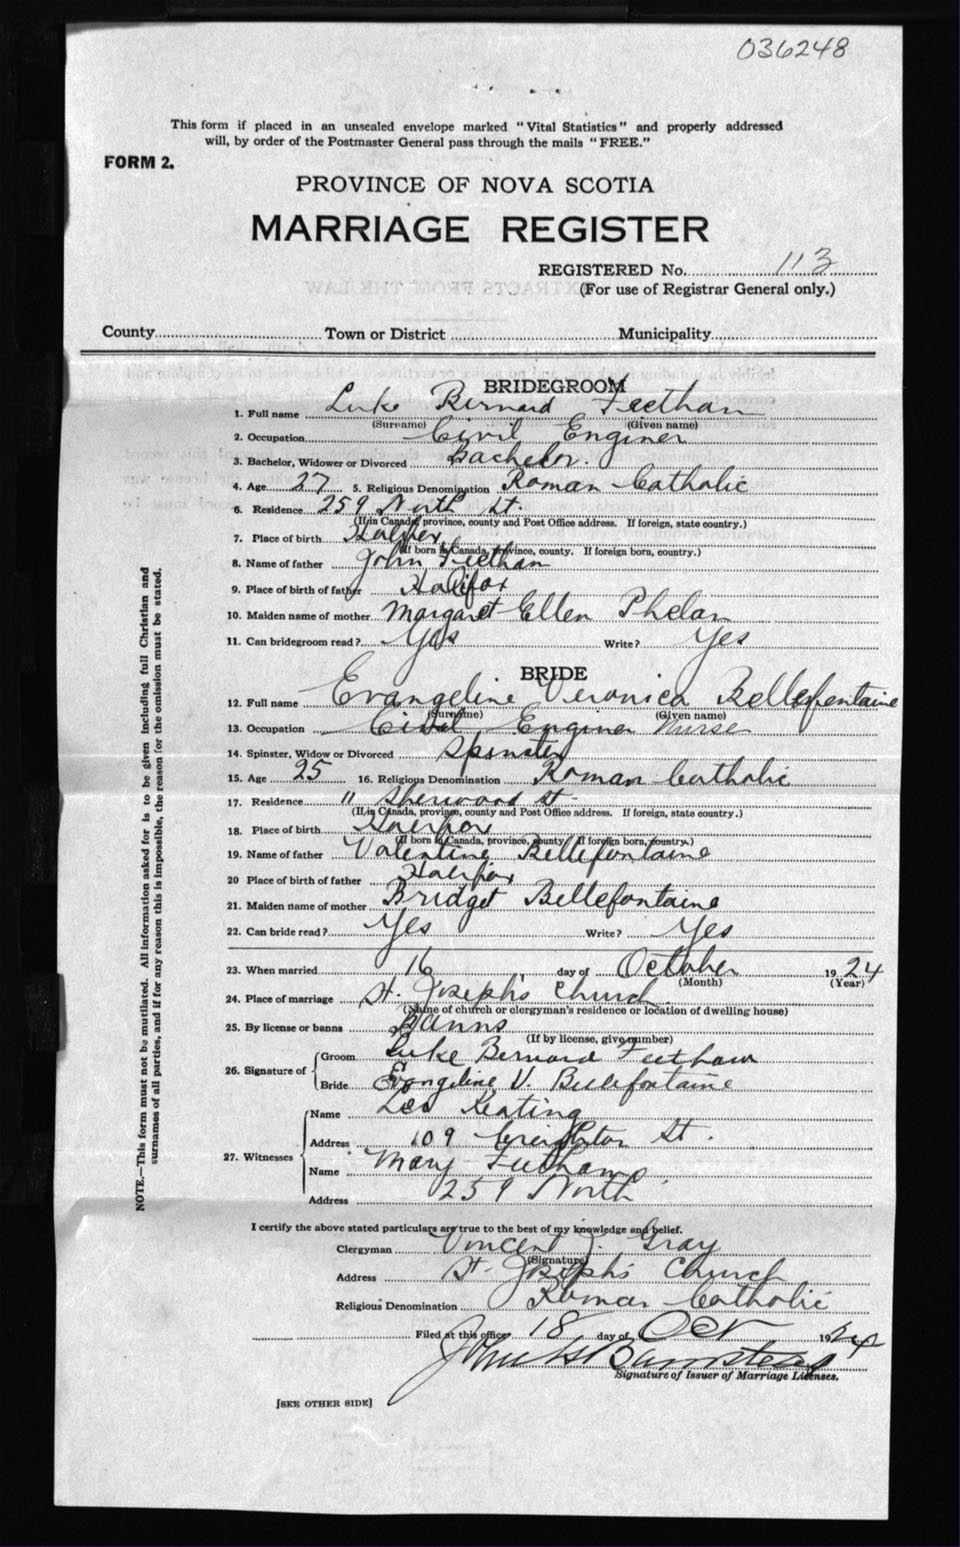 036248
This form if placed in an unsealed envelope marked "Vital Statistics" and properly addressed
will, by order of the Postmaster General pass through the mails "FREE."
FORM 2.
PROVINCE OF NOVA SCOTIA
MARRIAGE REGISTER
REGISTERED No. 113
(For use of Registrar General only.)
County Town or District Municipality
BRIDEGROOM
1. Full name Luke Bernard Feethan
(Surname) (Given name)
2. Occupation Civil Enginer
3. Bachelor, Widower or Divorced Bachelor.
4. Age 27 5. Religious Denomination Roman Catholic
6. Residence 259 North St.
(If in Canada, province, county and Post Office address. If foreign, state country.)
7. Place of birth Halifax
(If born in Canada, province, county. If foreign born, country.)
8. Name of father John Feethan
9. Place of birth of father Halifax
10. Maiden name of mother Margaret Ellen Phelan
11. Can bridegroom read? Yes Write? Yes
BRIDE
12. Full name Evangeline Veronica Bellefontaine
(Surname) (Given name)
13. Occupation Civil Enginer Nurse
14. Spinster, Widow or Divorced Spinster
15. Age 25 16. Religious Denomination Roman Catholic
17. Residence 11 Sherwood St-
(If in Canada, province, county and Post Office address. If foreign, state country.)
18. Place of birth Halifax
(If born in Canada, province, county. If foreign born, country.)
19. Name of father Valentine Bellefontaine
20 Place of birth of father Halifax
21. Maiden name of mother Bridget Bellefontaine
22. Can bride read? Yes Write? Yes
23. When married 16 day of October 1924
(Month) (Year)
24. Place of marriage St. Joseph's Church
(Name of church or clergyman's residence or location of dwelling house)
25. By license or banns Banns
(If by license, give number)
26. Signature of Groom Luke Bernard Feethan
Bride Evangeline V. Bellefontaine
27. Witnesses Name Leo Keating
Address 109 Creighton St.
Name Mary Feethan
Address 259 North
I certify the above stated particulars are true to the best of my knowledge and belief.
Clergyman Vincent J. Gray
(Signature)
Address St. Joseph's Church
Religious Denomination Roman Catholic
Filed at this office 18 day of Oct 1924
John
Signature of Issuer of Marriage Licenses.
[SEE OTHER SIDE]
NOTE.—This form must not be mutilated. All information asked for is to be given including full Christian and
surnames of all parties, and if for any reason this is impossible, the reason for the omission must be stated.